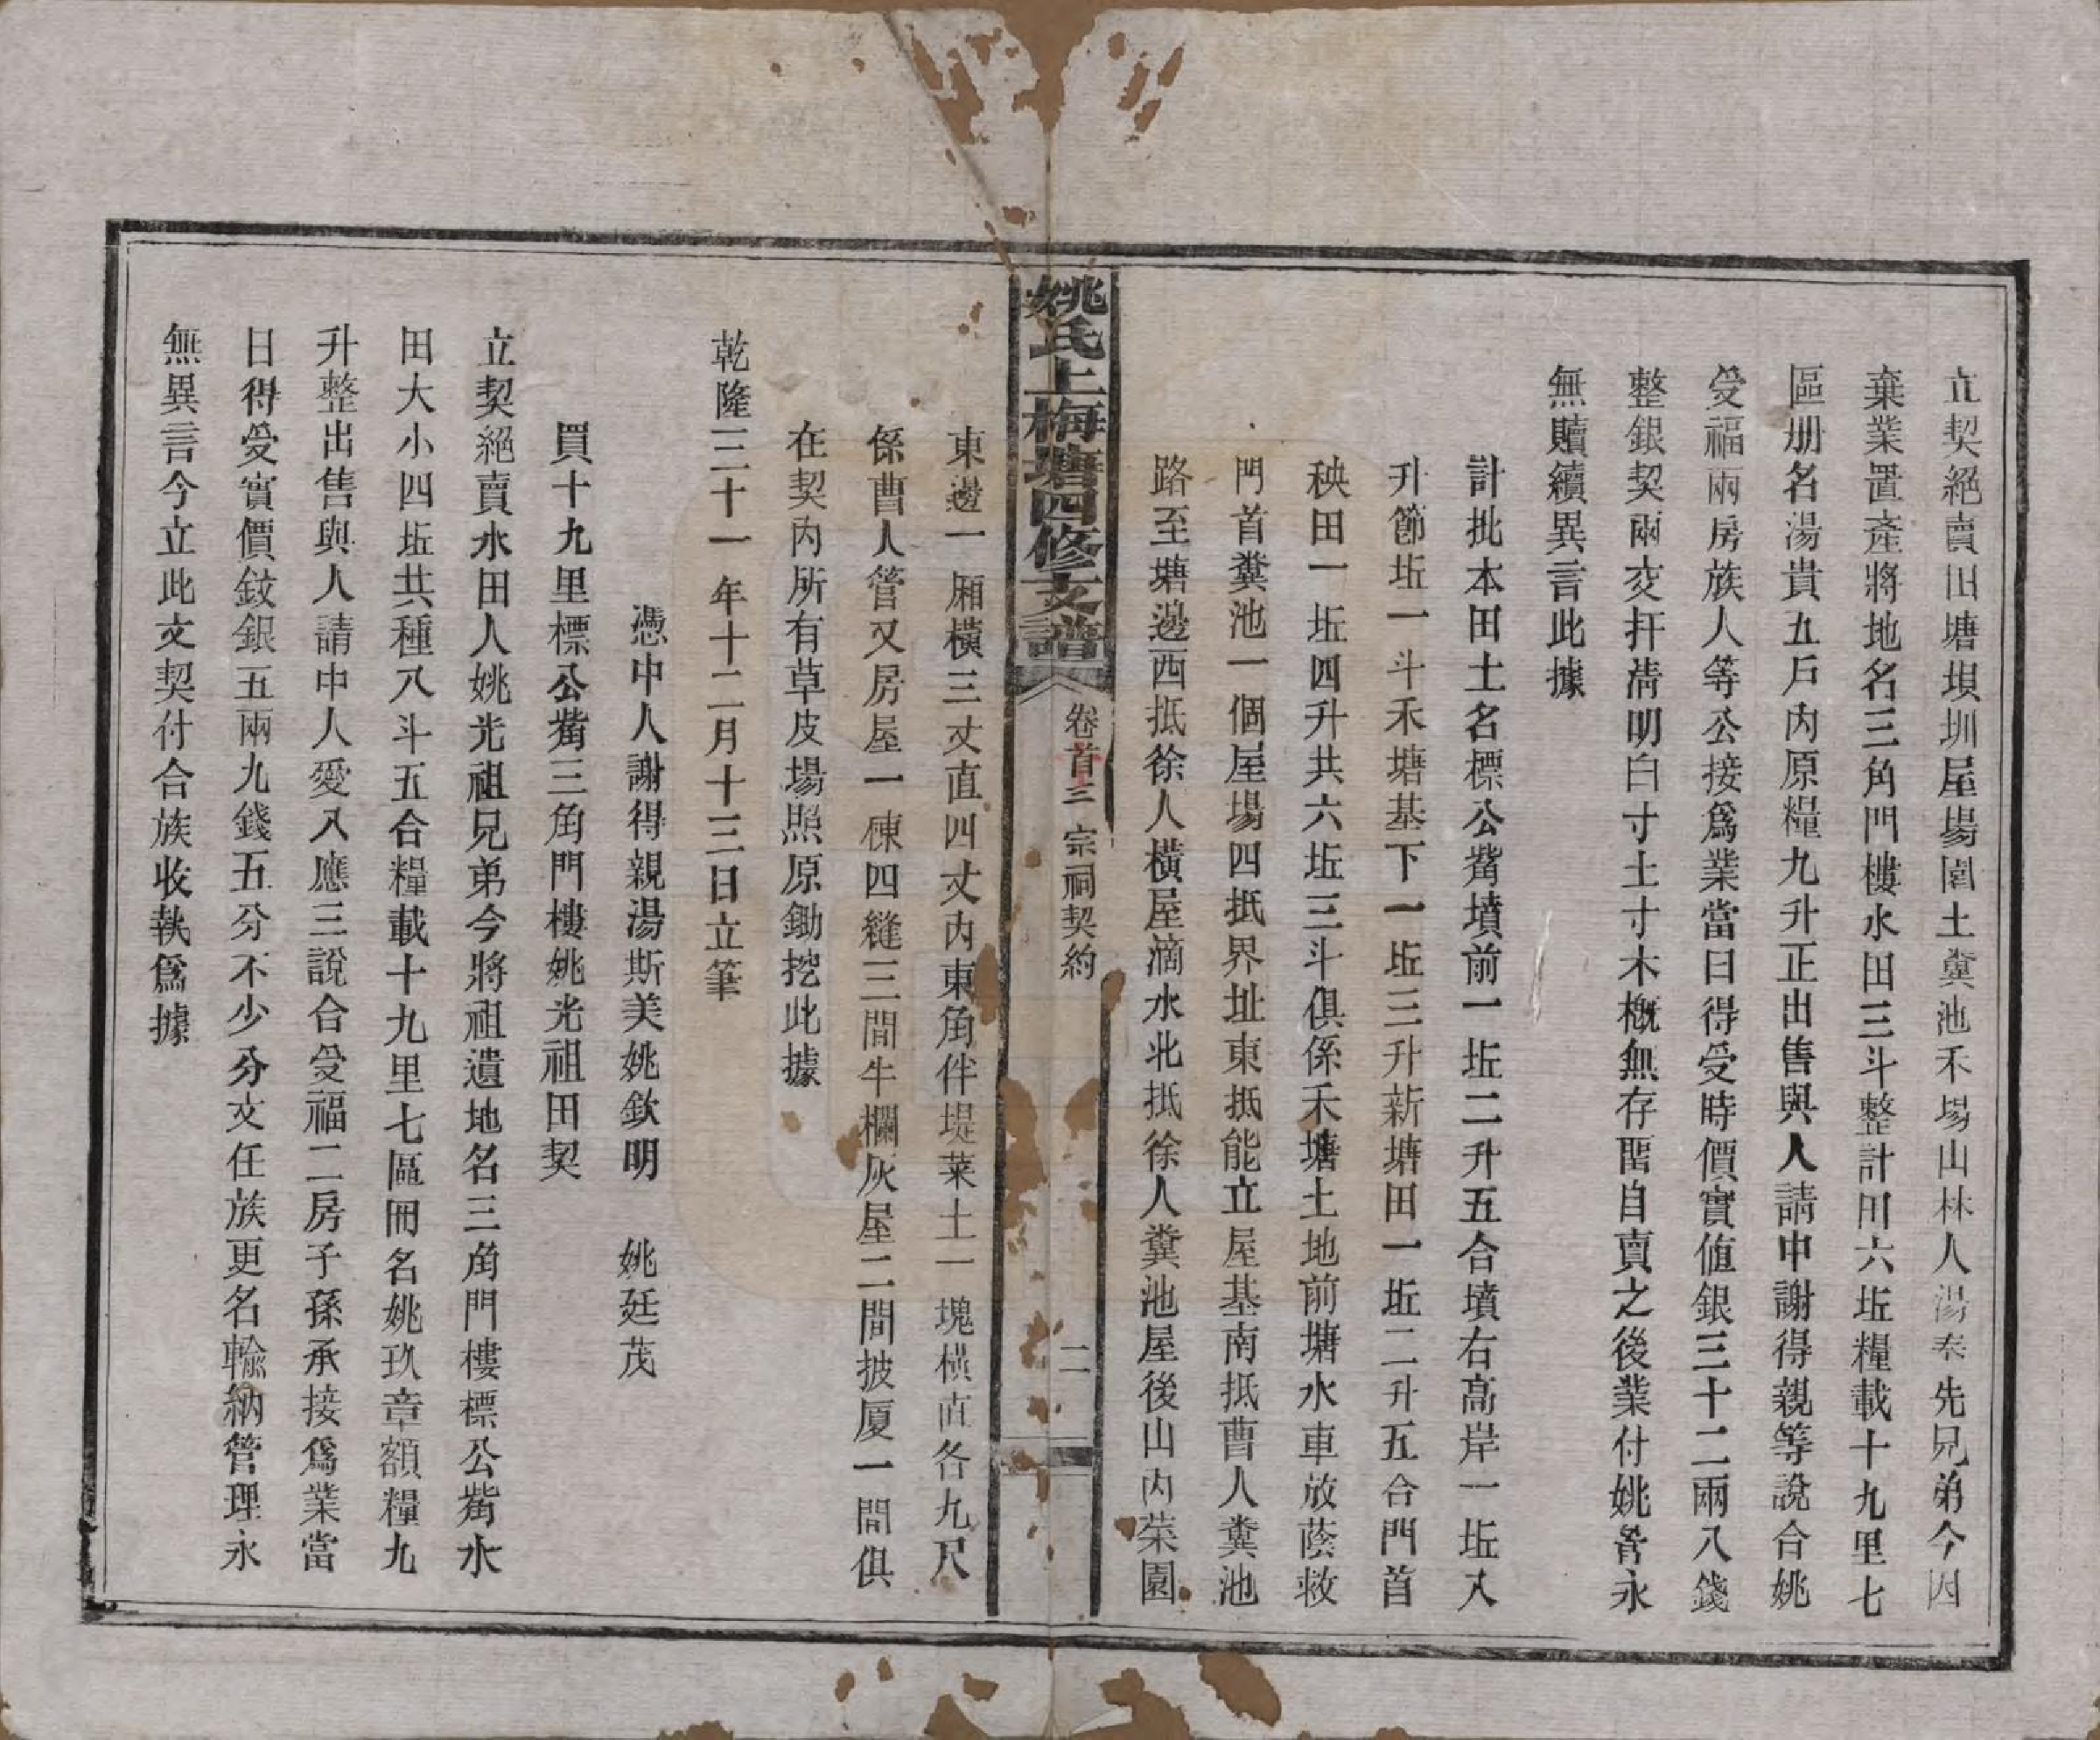 立契絕賣田塘垻圳屋場園土糞池禾場山林人湯泰先兄弟今因
棄業置產將地名三角門樓水田三斗整計田六坵糧載十九里七
區册名湯貴五戶內原糧九升正出售與人請中謝得親等說合姚
受福兩房族人等公接爲業當日得受時價實値銀三十二兩八錢
整銀契兩交扞淸明白寸土寸木槪無存畱自賣之後業付姚管永
無贖續異言此據
計批本田土名標公觜墳前一坵二升五合墳右高岸一坵八
升節坵一斗禾塘基下一坵三升新塘田一坵二升五合門首
秧田一坵四升共六坵三斗俱係禾塘土地前塘水車放蔭救
門首糞池一個屋場四抵界址東抵能立屋基南抵曹人糞池
路至塘邊西抵徐人橫屋滴水北抵徐人糞池屋後山內菜園
姚氏上梅塘四修支譜
卷首三 宗祠契約
二
東邊一廂橫三丈直四丈內東角伴堤菜土一塊橫直各九尺
係曹人管又房屋一棟四縫三間牛欄灰屋二間披厦一間俱
在契內所有草皮場照原鋤挖此據
乾隆三十一年十二月十三日立筆
憑中人謝得親湯斯美姚欽明 姚廷茂
買十九里標公觜三角門樓姚光祖田契
立契絕賣水田人姚光祖兄弟今將祖遺地名三角門樓標公觜水
田大小四坵共種八斗五合糧載十九里七區冊名姚玖章額糧九
升整出售與人請中人愛入應三說合受福二房子孫承接爲業當
日得受實價銨銀五兩九錢五分不少分文任族更名輸納管理永
無異言今立此文契付合族收執爲據